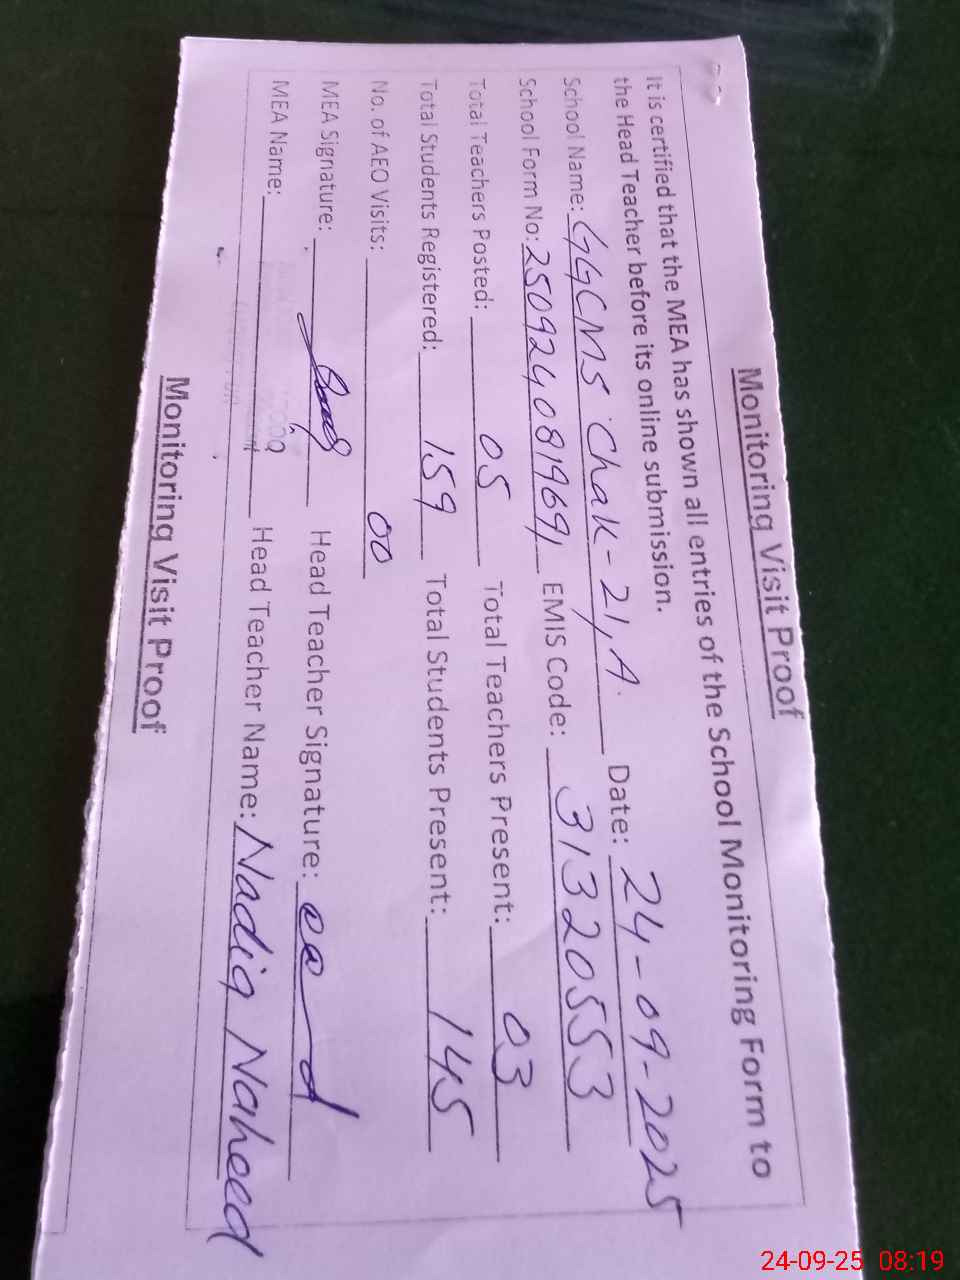 Monitoring Visit Proof
It is certified that the MEA has shown all entries of the School Monitoring Form to
the Head Teacher before its online submission.
School Name: GGCMS Chak-21/A. Date: 24-09-2025
School Form No: 2509240819691 EMIS Code: 31320553
Total Teachers Posted: 05 Total Teachers Present: 03
Total Students Registered: 159 Total Students Present: 145
No. of AEO Visits: 00
MEA Signature: Head Teacher Signature:
MEA Name: Head Teacher Name: Nadia Naheed
Monitoring Visit Proof
24-09-25 08:19